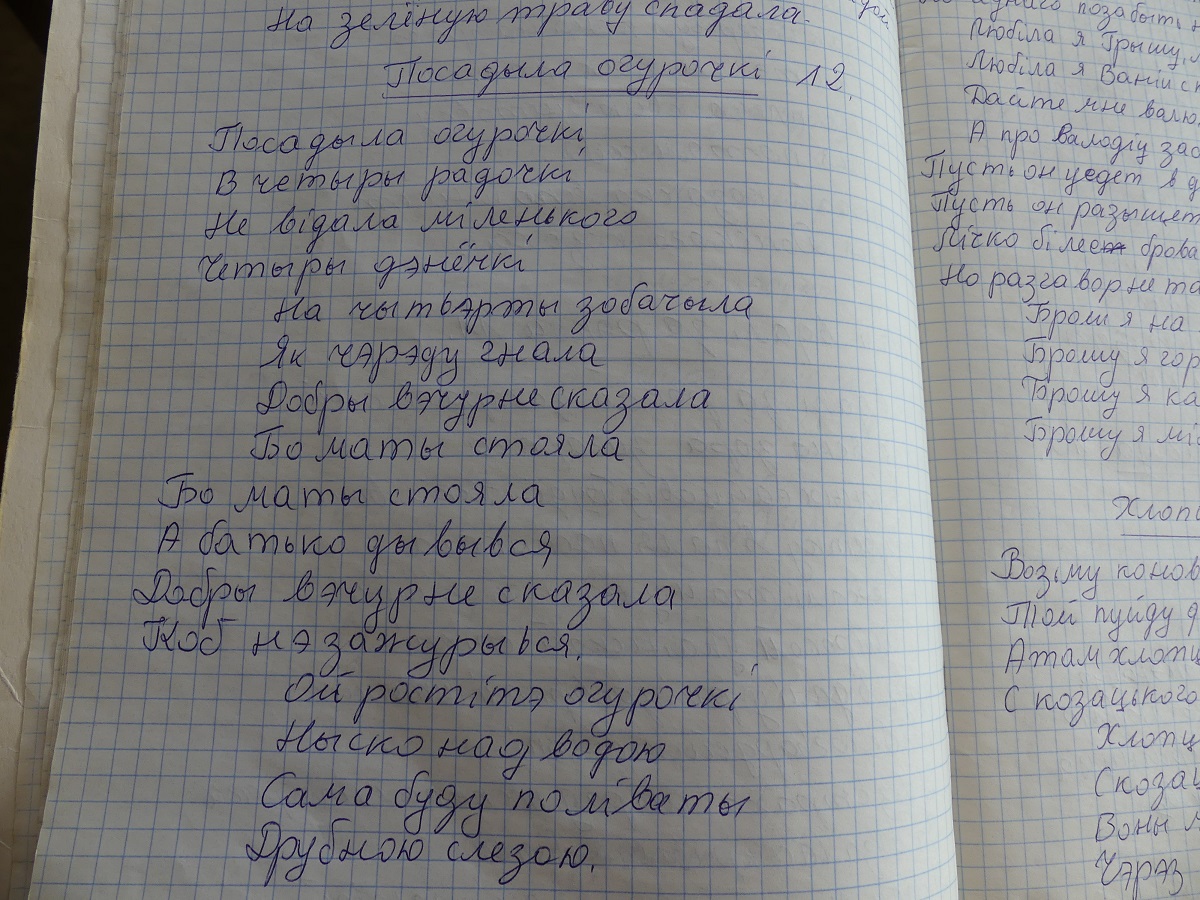 На зелёную траву спадала.
Посадыла огурочкі 12.
Посадыла огурочкі
В четыры радочкі
Не відала міленького
Четыры дэнёчкі
На чытвэрты зобачыла
Як чэрэду гнала
Добры вэчур не сказала
Бо маты стояла
Бо маты стояла
А батько дывывся
Добры вэчур не сказала
Коб нэ зажурывся.
Ой ростітэ огурочкі
Ныско над водою
Сама буду поліваты
Друбною слезою.
позабыть
Любіла я Грышу,
Любіла я Ваній
Дайте мне
А про Валодіу
Пусть он уедет в
Пусть он разыщет
Лічко біле брова
Но разгавор не та
Брош я на
Брошу я гор
Брошу я ка
Брошу я мі
Хлопц
Возьму конов
Той пуйду д
А там хлопц
С козацького
Хлопц
С козац
Воны
Чэрэз